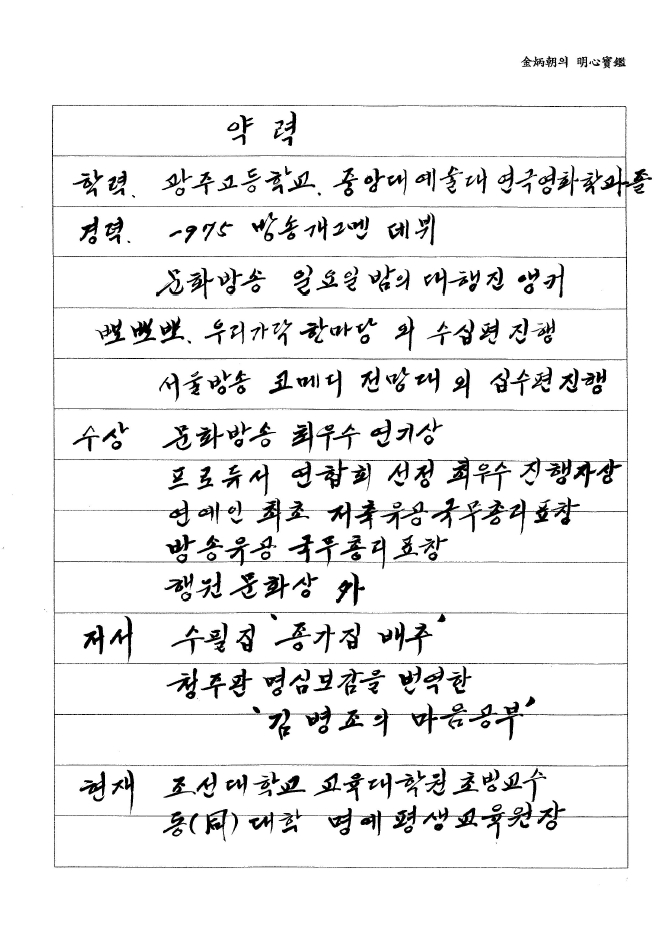 金炳朝의 明心寶鑑
약력
학력. 광주고등학교. 중앙대 예술대 연극영화학과졸
경력. 1975 방송개그멘 데뷔
문화방송 일요일밤의 대행진 앵커
뽀뽀뽀. 우리가락 한마당 외 수십편 진행
서울방송 코메디 전망대 외 십수편 진행
수상 문화방송 최우수 연기상
프로듀서 연합회 선정 최우수 진행자상
연예인 최초 저축유공 국무총리표창
방송유공 국무총리표창
행원문화상 外
저서 수필집 '종가집 배추'
청주판 명심보감을 번역한
'김병조의 마음공부'
현재 조선대학교 교육대학원 초빙교수
동(同) 대학 명예평생교육원장